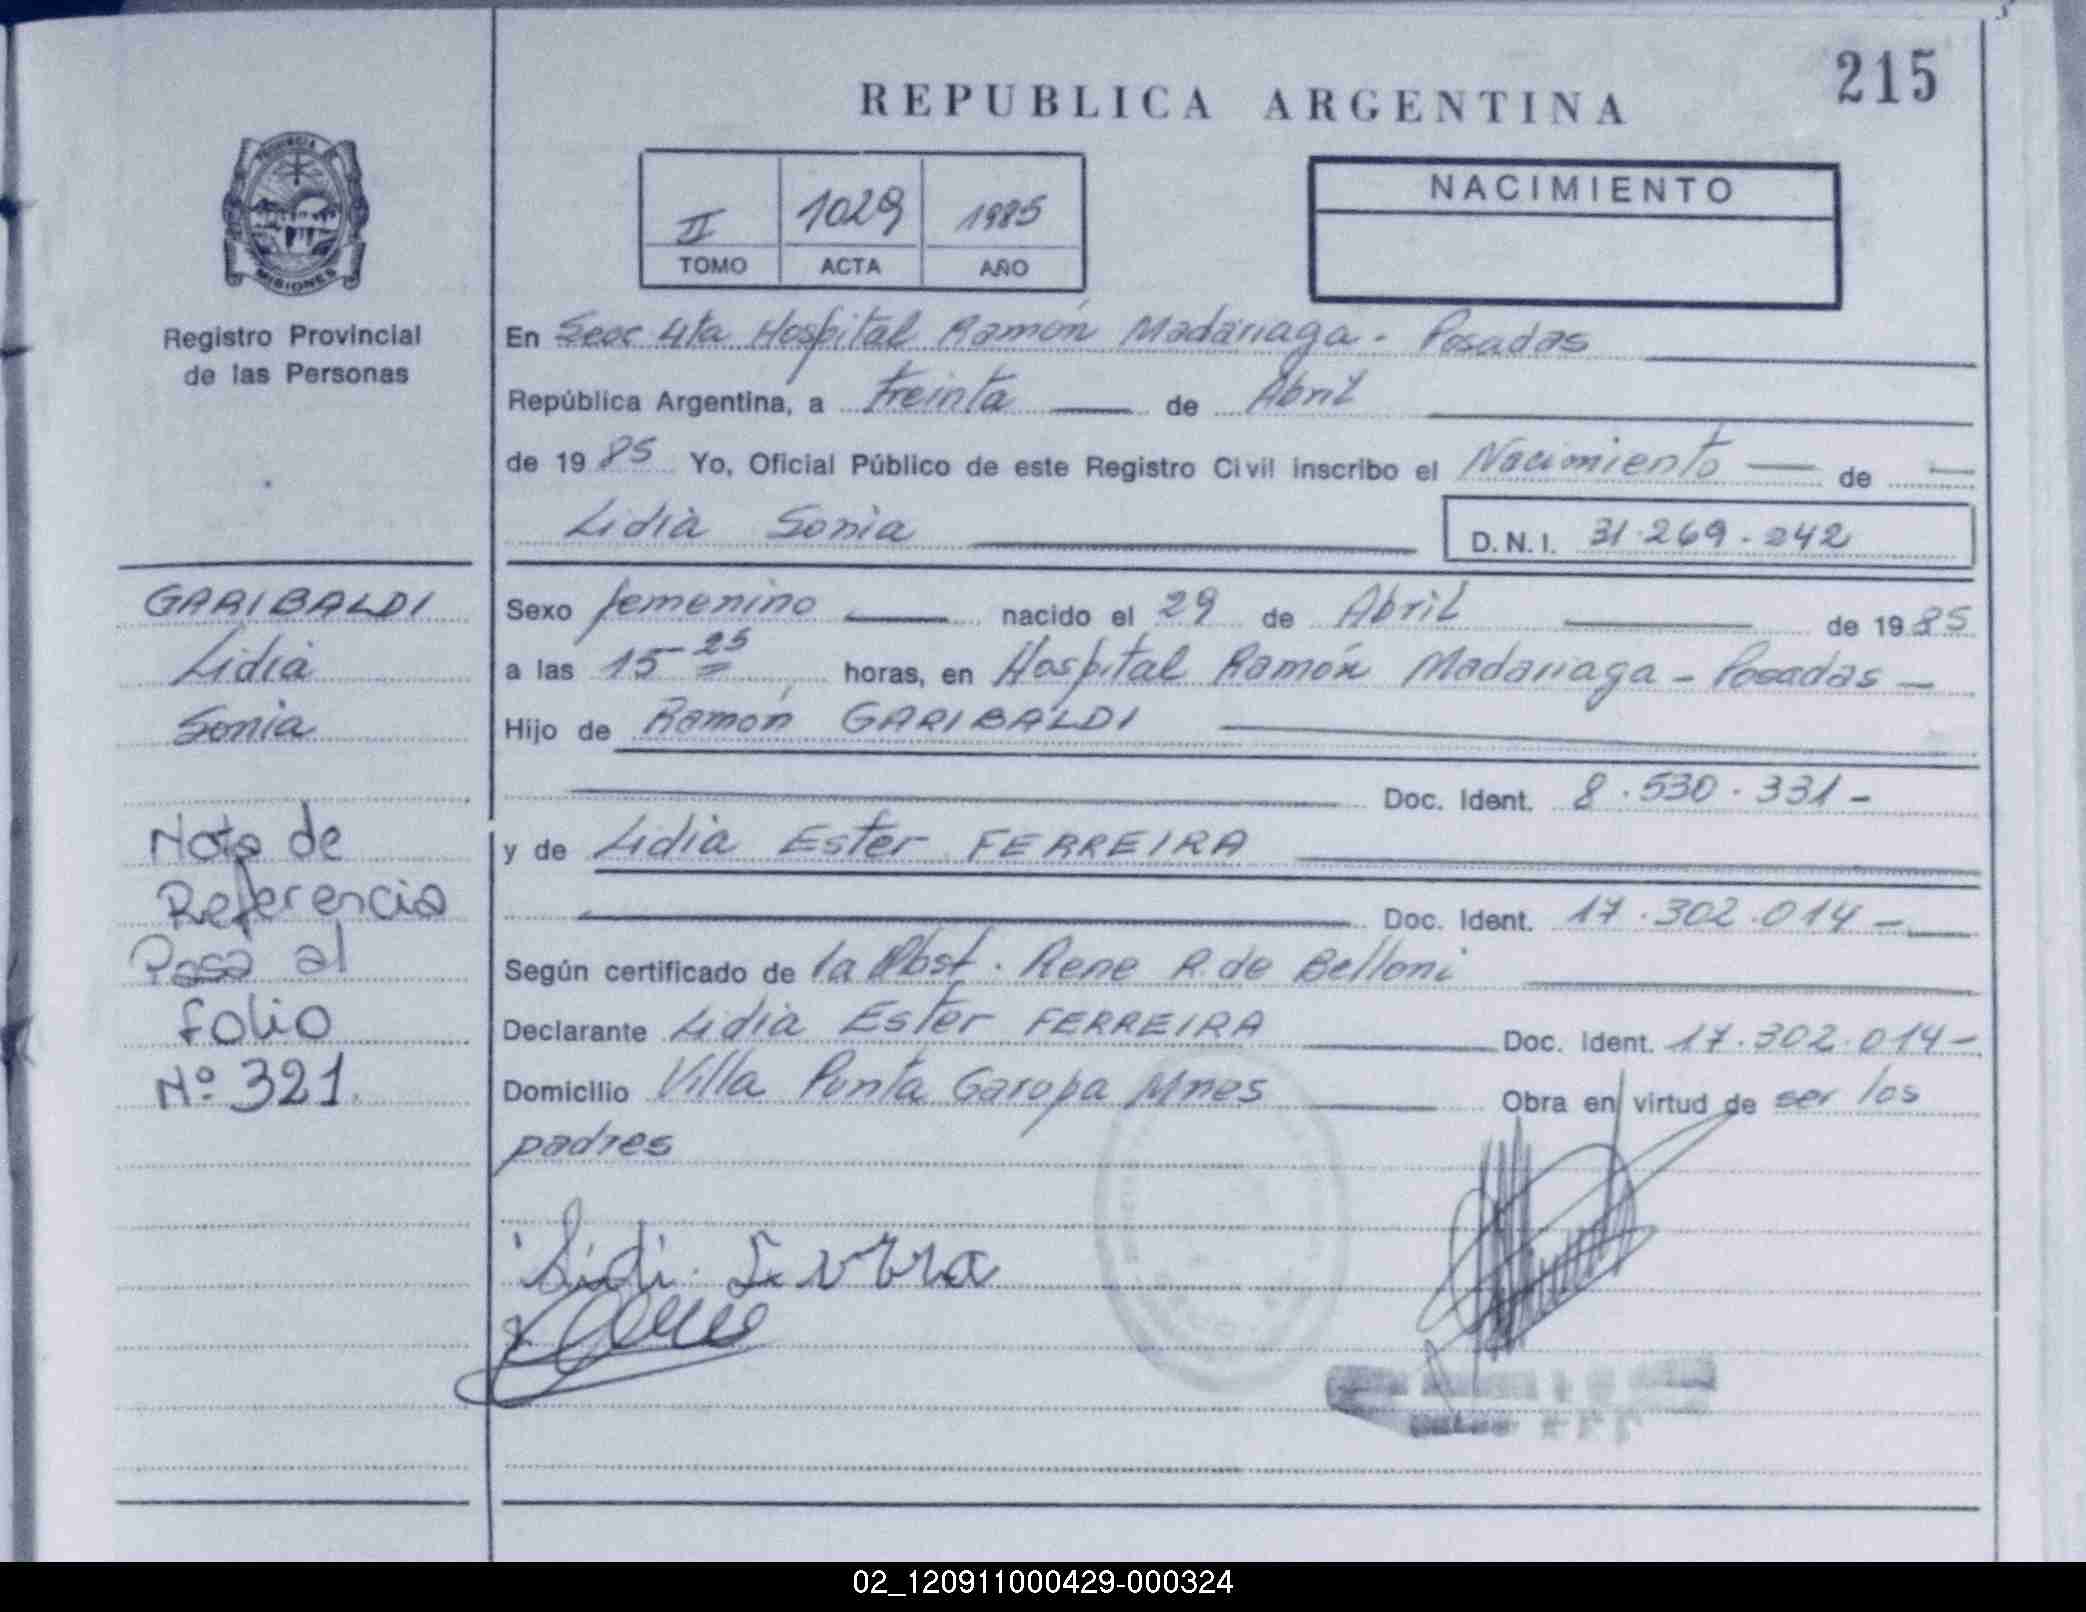 215
REPUBLICA ARGENTINA
PROVINCIA DE
MISIONES
Registro Provincial
de las Personas
II 1029 1985
TOMO ACTA AÑO
NACIMIENTO
En Secc 4ta Hospital Ramón Madariaga - Posadas
República Argentina, a treinta de Abril
de 1985 Yo, Oficial Público de este Registro Civil inscribo el Nacimiento de
Lidia Sonia D.N.I. 31.269.242
GARIBALDI
Lidia
Sonia
Sexo femenino nacido el 29 de Abril de 1985
a las 15 25 horas, en Hospital Ramón Madariaga - Posadas -
Hijo de Ramón GARIBALDI
Doc. Ident. 8.530.331-
y de Lidia Ester FERREIRA
Doc. Ident. 17.302.014-
Según certificado de la Obst. Rene R. de Belloni
Declarante Lidia Ester FERREIRA Doc. Ident. 17.302.014-
Domicilio Villa Punta Garopa Mnes Obra en virtud de ser los
padres
Nota de
Referencia
Pasa al
folio
Nº 321.
02_120911000429-000324